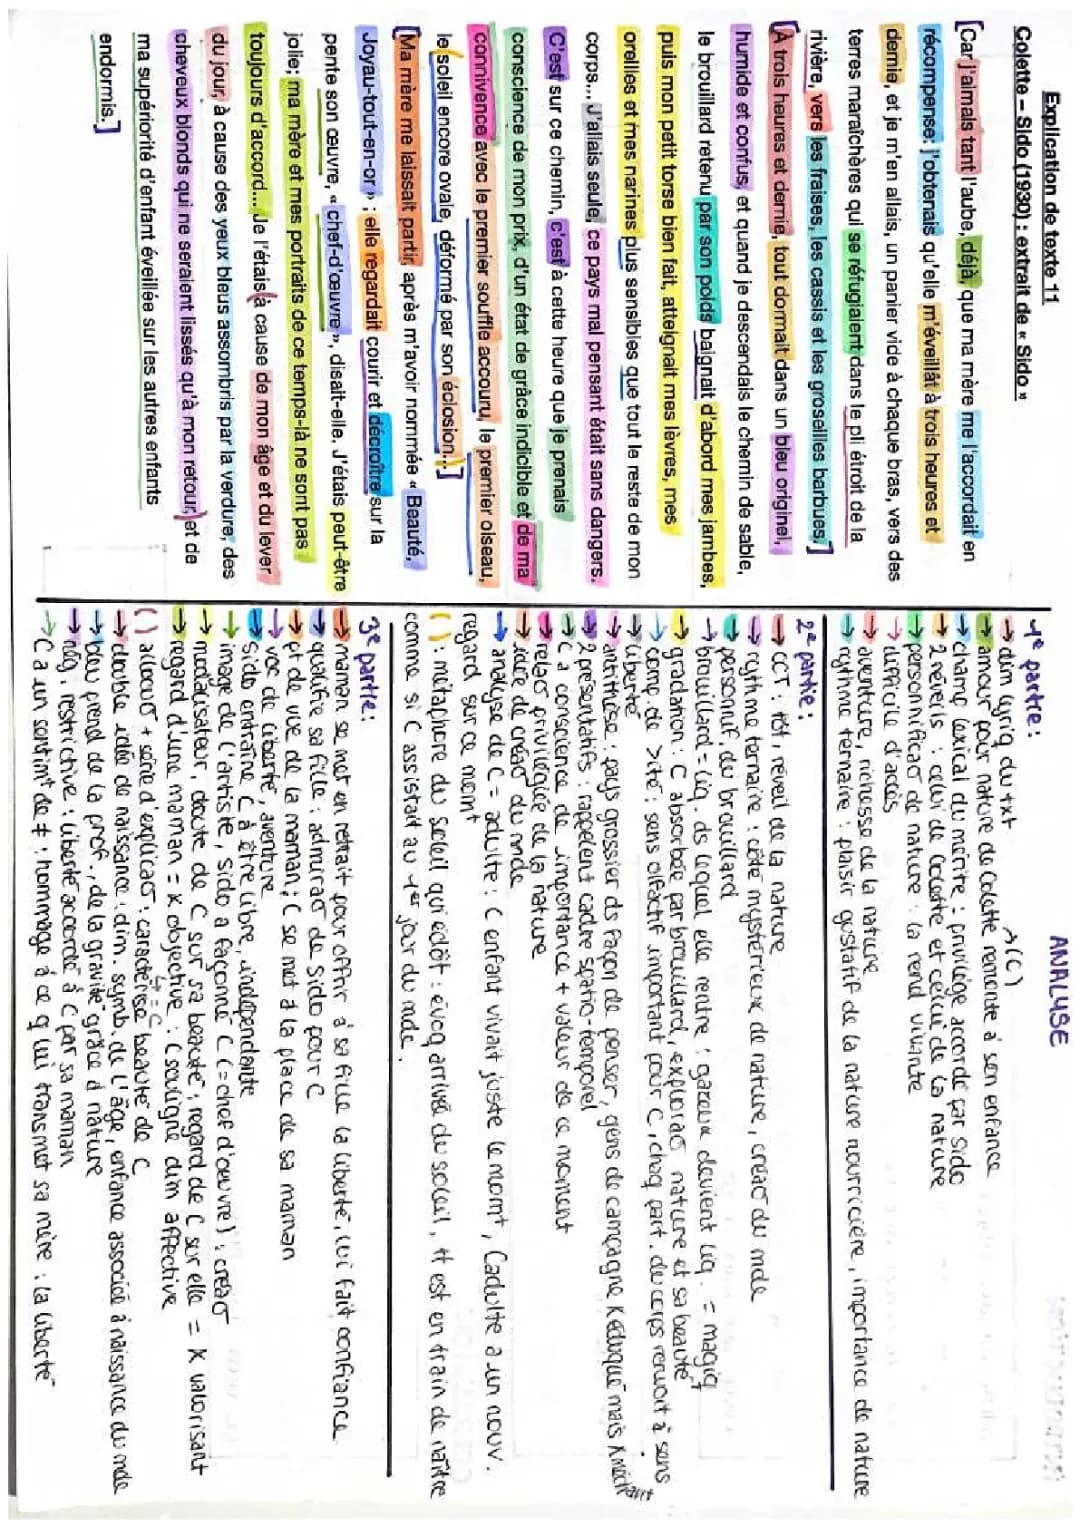 Explication de texte 11
Colette – Sido (1930) : extrait de « Sido »
[Car j'aimais tant l'aube, déjà, que ma mère me l'accordait en
récompense; j'obtenais qu'elle m'éveillât à trois heures et
demie, et je m'en allais, un panier vide à chaque bras, vers des
terres maraîchères qui se réfugiaient dans le pli étroit de la
rivière, vers les fraises, les cassis et les groseilles barbues.]
[À trois heures et demie, tout dormait dans un bleu originel,
humide et confus, et quand je descendais le chemin de sable,
le brouillard retenu par son poids baignait d'abord mes jambes,
puis mon petit torse bien fait, atteignait mes lèvres, mes
oreilles et mes narines plus sensibles que tout le reste de mon
corps... J'allais seule, ce pays mal pensant était sans dangers.
C'est sur ce chemin, c'est à cette heure que je prenais
conscience de mon prix, d'un état de grâce indicible et de ma
connivence avec le premier souffle accouru, le premier oiseau,
le (soleil encore ovale, déformé par son éclosion...)]
[Ma mère me laissait partir, après m'avoir nommée « Beauté,
Joyau-tout-en-or » ; elle regardait courir et décroître sur la
pente son œuvre, « chef-d'œuvre », disait-elle. J'étais peut-être
jolie; ma mère et mes portraits de ce temps-là ne sont pas
toujours d'accord... Je l'étais (à cause de mon âge et du lever
du jour, à cause des yeux bleus assombris par la verdure, des
cheveux blonds qui ne seraient lissés qu'à mon retour,) et de
ma supériorité d'enfant éveillée sur les autres enfants
endormis.]
ANALYSE
1e partie :
→ dim lyriq du txt → (C)
→ amour pour nature de Colette remonte à son enfance
→ champ lexical du mérite : privilège accordé par Sido
→ 2 réveils : celui de Colette et celui de la nature
→ personnificat° de nature : la rend vivante
→ difficile d'accès
→ aventure, richesse de la nature
→ rythme ternaire : plaisir gustatif de la nature nourricière, importance de nature
2e partie :
→ CCT : tôt, réveil de la nature
→ rythme ternaire : côté mystérieux de nature, créat° du mde
→ personnif. du brouillard
→ brouillard = liq. ds lequel elle rentre : gazeux devient liq. = magiq
→ gradation : C absorbée par brouillard, explorat° nature et sa beauté
→ comp. de >ité : sens olfactif important pour C, chaq part. du corps renvoit à sens
→ liberté
→ antithèse : pays grossier ds façon de penser, gens de campagne x éduqué mais x méchant
→ 2 présentatifs : rappelent cadre spatio-temporel
→ C a conscience de importance + valeur de ce moment
→ relat° privilégiée de la nature
→ idée de créat° du mde
→ analyse de C = adulte : C enfant vivait juste le momt, C adulte a un nouv.
regard sur ce momt
( ) : métaphore du soleil qui éclôt : évoq arrivée du soleil, tt est en train de naître
comme si C assistait au 1er jour du mde.
3e partie :
→ maman se met en retrait pour offrir à sa fille la liberté, lui fait confiance
→ qualifie sa fille : admirat° de Sido pour C
→ pt de vue de la maman ; C se met à la place de sa maman
→ voc de liberté, aventure
→ Sido entraîne C à être libre, indépendante
→ image de l'artiste, Sido a façonné C (= chef d'œuvre) ; créat°
→ modalisateur, doute de C sur sa beauté ; regard de C sur elle = x valorisant
→ regard d'une maman = x objective : C souligne dim affective
( ) caractérise beauté de C
→ double idée de naissance : dim. symb. de l'âge, enfance associée à naissance du mde
→ bleu prend de la prof., de la gravité grâce à nature
→ nég. restrictive : liberté accordée à C par sa maman
→ C a un sentimt de ≠ ; hommage à ce q lui transmet sa mère : la liberté